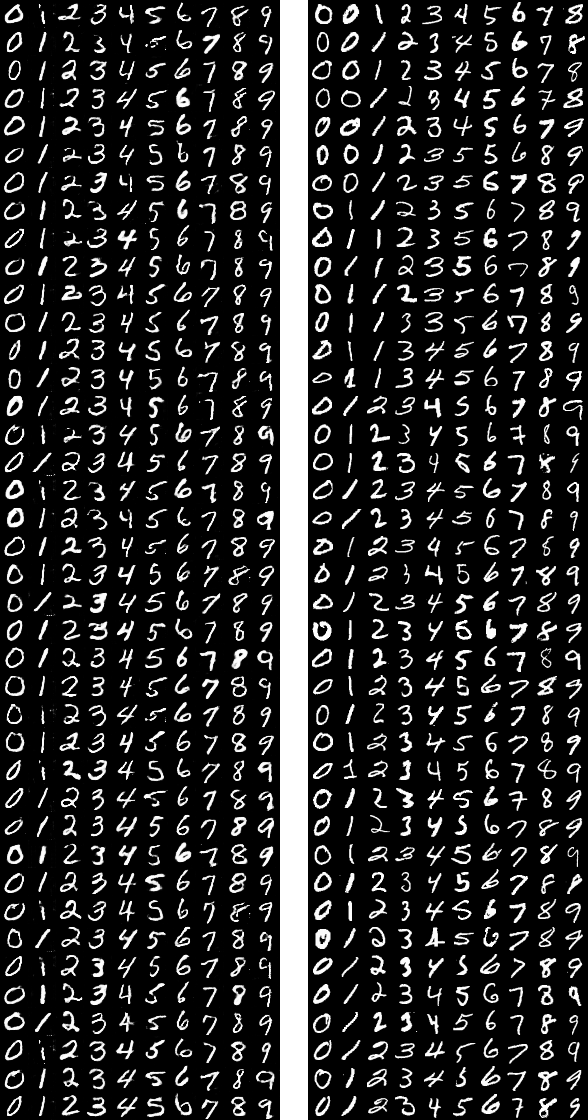 0 1 2 3 4 5 6 7 8 9
0 1 2 3 4 5 6 7 8 9
0 1 2 3 4 5 6 7 8 9
0 1 2 3 4 5 6 7 8 9
0 1 2 3 4 5 6 7 8 9
0 1 2 3 4 5 6 7 8 9
0 1 2 3 4 5 6 7 8 9
0 1 2 3 4 5 6 7 8 9
0 1 2 3 4 5 6 7 8 9
0 1 2 3 4 5 6 7 8 9
0 1 2 3 4 5 6 7 8 9
0 1 2 3 4 5 6 7 8 9
0 1 2 3 4 5 6 7 8 9
0 1 2 3 4 5 6 7 8 9
0 1 2 3 4 5 6 7 8 9
0 1 2 3 4 5 6 7 8 9
0 1 2 3 4 5 6 7 8 9
0 1 2 3 4 5 6 7 8 9
0 1 2 3 4 5 6 7 8 9
0 1 2 3 4 5 6 7 8 9
0 1 2 3 4 5 6 7 8 9
0 1 2 3 4 5 6 7 8 9
0 1 2 3 4 5 6 7 8 9
0 1 2 3 4 5 6 7 8 9
0 1 2 3 4 5 6 7 8 9
0 1 2 3 4 5 6 7 8 9
0 1 2 3 4 5 6 7 8 9
0 1 2 3 4 5 6 7 8 9
0 1 2 3 4 5 6 7 8 9
0 1 2 3 4 5 6 7 8 9
0 1 2 3 4 5 6 7 8 9
0 1 2 3 4 5 6 7 8 9
0 1 2 3 4 5 6 7 8 9
0 1 2 3 4 5 6 7 8 9
0 1 2 3 4 5 6 7 8 9
0 1 2 3 4 5 6 7 8 9
0 1 2 3 4 5 6 7 8 9
0 1 2 3 4 5 6 7 8 9
0 1 2 3 4 5 6 7 8 9
0 1 2 3 4 5 6 7 8 9
0 0 1 2 3 4 5 6 7 8
0 0 1 2 3 4 5 6 7 8
0 0 1 2 3 4 5 6 7 8
0 0 1 2 3 4 5 6 7 8
0 0 1 2 3 4 5 6 7 9
0 0 1 2 3 5 5 6 8 9
0 0 1 2 3 5 6 7 8 9
0 1 1 2 3 5 6 7 8 9
0 1 1 2 3 5 6 7 8 9
0 1 1 2 3 5 6 7 8 9
0 1 1 2 3 5 6 7 8 9
0 1 1 3 3 5 6 7 8 9
0 1 1 3 4 5 6 7 8 9
0 1 1 3 4 5 6 7 8 9
0 1 2 3 4 5 6 7 8 9
0 1 2 3 4 5 6 7 8 9
0 1 2 3 4 5 6 7 8 9
0 1 2 3 4 5 6 7 8 9
0 1 2 3 4 5 6 7 8 9
0 1 2 3 4 5 6 7 8 9
0 1 2 3 4 5 6 7 8 9
0 1 2 3 4 5 6 7 8 9
0 1 2 3 4 5 6 7 8 9
0 1 2 3 4 5 6 7 8 9
0 1 2 3 4 5 6 7 8 9
0 1 2 3 4 5 6 7 8 9
0 1 2 3 4 5 6 7 8 9
0 1 2 3 4 5 6 7 8 9
0 1 2 3 4 5 6 7 8 9
0 1 2 3 4 5 6 7 8 9
0 1 2 3 4 5 6 7 8 9
0 1 2 3 4 5 6 7 8 9
0 1 2 3 4 5 6 7 8 9
0 1 2 3 4 5 6 7 8 9
0 1 2 3 4 5 6 7 8 9
0 1 2 3 4 5 6 7 8 9
0 1 2 3 4 5 6 7 8 9
0 1 2 3 4 5 6 7 8 9
0 1 2 3 4 5 6 7 8 9
0 1 2 3 4 5 6 7 8 9